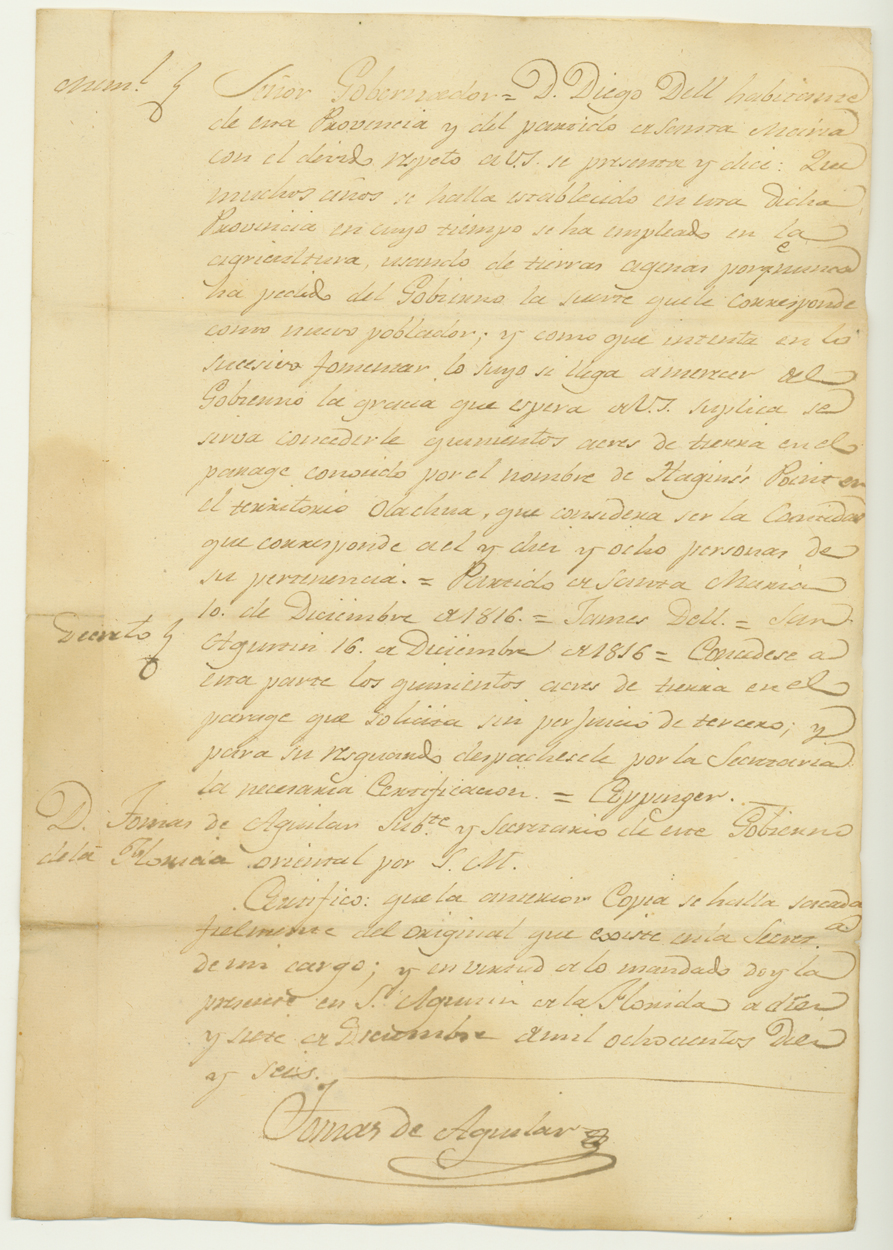 Mem.l Señor Gobernador = D. Diego Dell habitante
de esta Provincia y del partido de Santa Maria
con el devido respeto a V.S. se presenta y dice: Que
muchos años se halla establecido en esta dicha
Provincia en cuyo tiempo se ha empleado en la
agricultura, usando de tierras agenas porq.e nunca
ha pedido del Gobierno la suerte que le corresponde
como nuevo poblador; y como que intenta en lo
sucesivo fomentar lo suyo si llega a merecer del
Gobierno la gracia que espera de V.S. suplica se
sirva concederle quinientos acres de tierra en el
parage conocido por el nombre de Hagins's Point en
el territorio Olachua, que considera ser la Cantidad
que corresponde a el y diez y ocho personas de
su pertenencia. = Partido de Santa Maria
10. de Diciembre de 1816. = James Dell. = San
Decreto Agustin 16. de Diciembre de 1816 = Concedese a
esta parte los quinientos acres de tierra en el
parage que solicita sin perjuicio de tercero; y
para su resguardo despachesele por la Secretaria
la necesaria Certificacion. = Coppinger.
D. Tomas de Aguilar Sub.te y Secretario de este Gobierno
de la Florida oriental por S. M.
Certifico: que la anterior Copia se halla sacada
fielmente del original que existe en la Secret.a
de mi cargo; y en virtud de lo mandado doy la
presente en S.n Agustin de la Florida a diez
y siete de Diciembre de mil ochocientos Diez
y seis.
Tomas de Aguilar